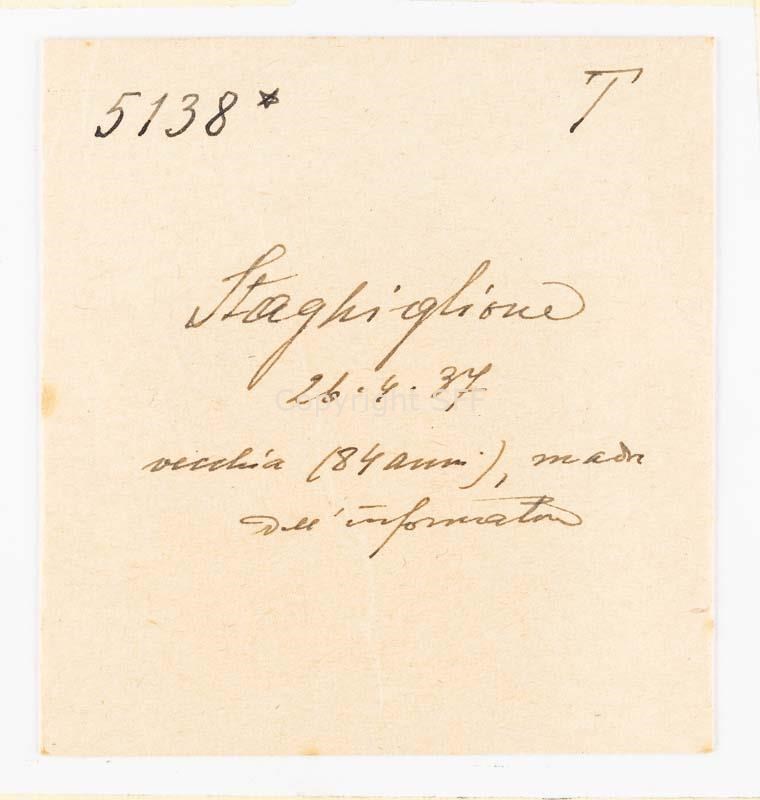 5138* T
Staghiglione
26.4.37
Copyright SFF
vecchia (84 anni), madre
dell'informatore